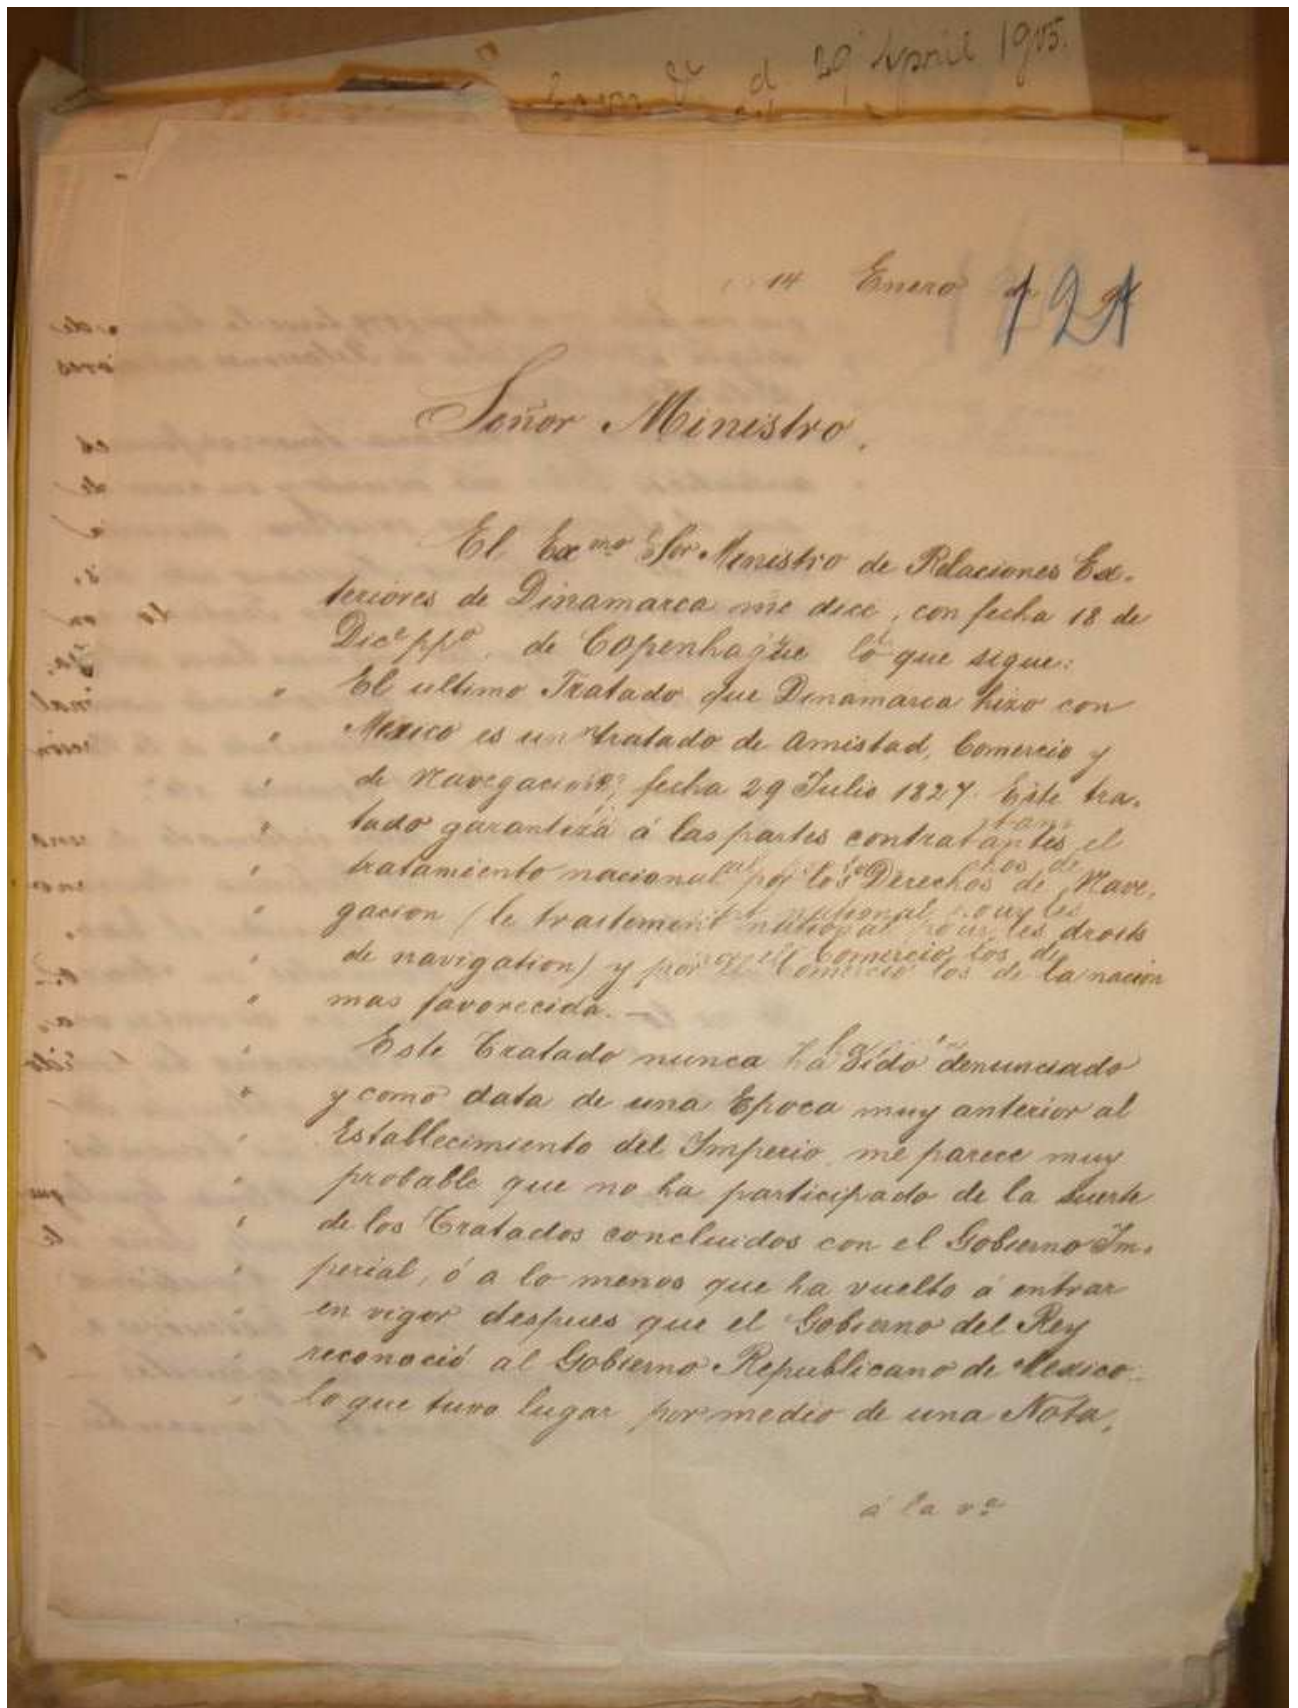 d 29 April 1905.
14 Enero
121
Señor Ministro.
El Exmo Sor Ministro de Relaciones Ex-
teriores de Dinamarca me dice, con fecha 18 de
Dice ppo. de Copenhague lo que sigue:
" El ultimo Tratado que Dinamarca hizo con
" Mexico es un tratado de Amistad, Comercio y
" de Navegacion, fecha 29 Julio 1827. Este tra-
" tado garantiza á las partes contratantes el
" tratamiento nacional por los Derechos de Nave-
" gacion (le traitement national pour les droits
" de navigation) y por el Comercio los de la nacion
" mas favorecida.—
" Este Tratado nunca ha sido denunciado
" y como data de una Epoca muy anterior al
" Establecimiento del Imperio, me parece muy
" probable que no ha participado de la suerte
" de los Tratados concluidos con el Gobierno Im-
" perial, ó a lo menos que ha vuelto á entrar
" en vigor despues que el Gobierno del Rey
" reconoció al Gobierno Republicano de Mexico
" lo que tuvo lugar por medio de una Nota,
á la va